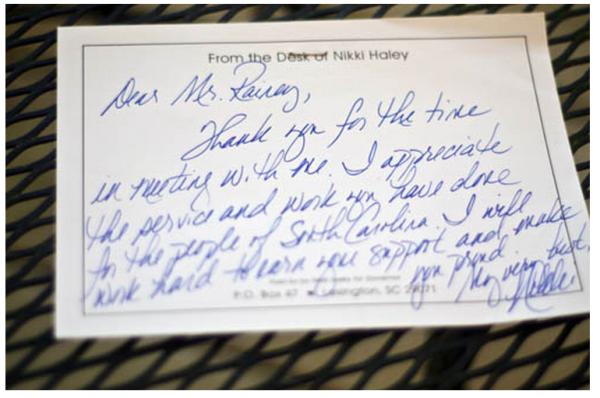 From the Desk of Nikki Haley
Dear Mr. Rainey,
Thank you for the time
in meeting with me. I appreciate
the service and work you have done
for the people of South Carolina. I will
work hard to earn your support and make
you proud.
My very best,
Nikki
P.O. Box 67 Lexington, SC 29071